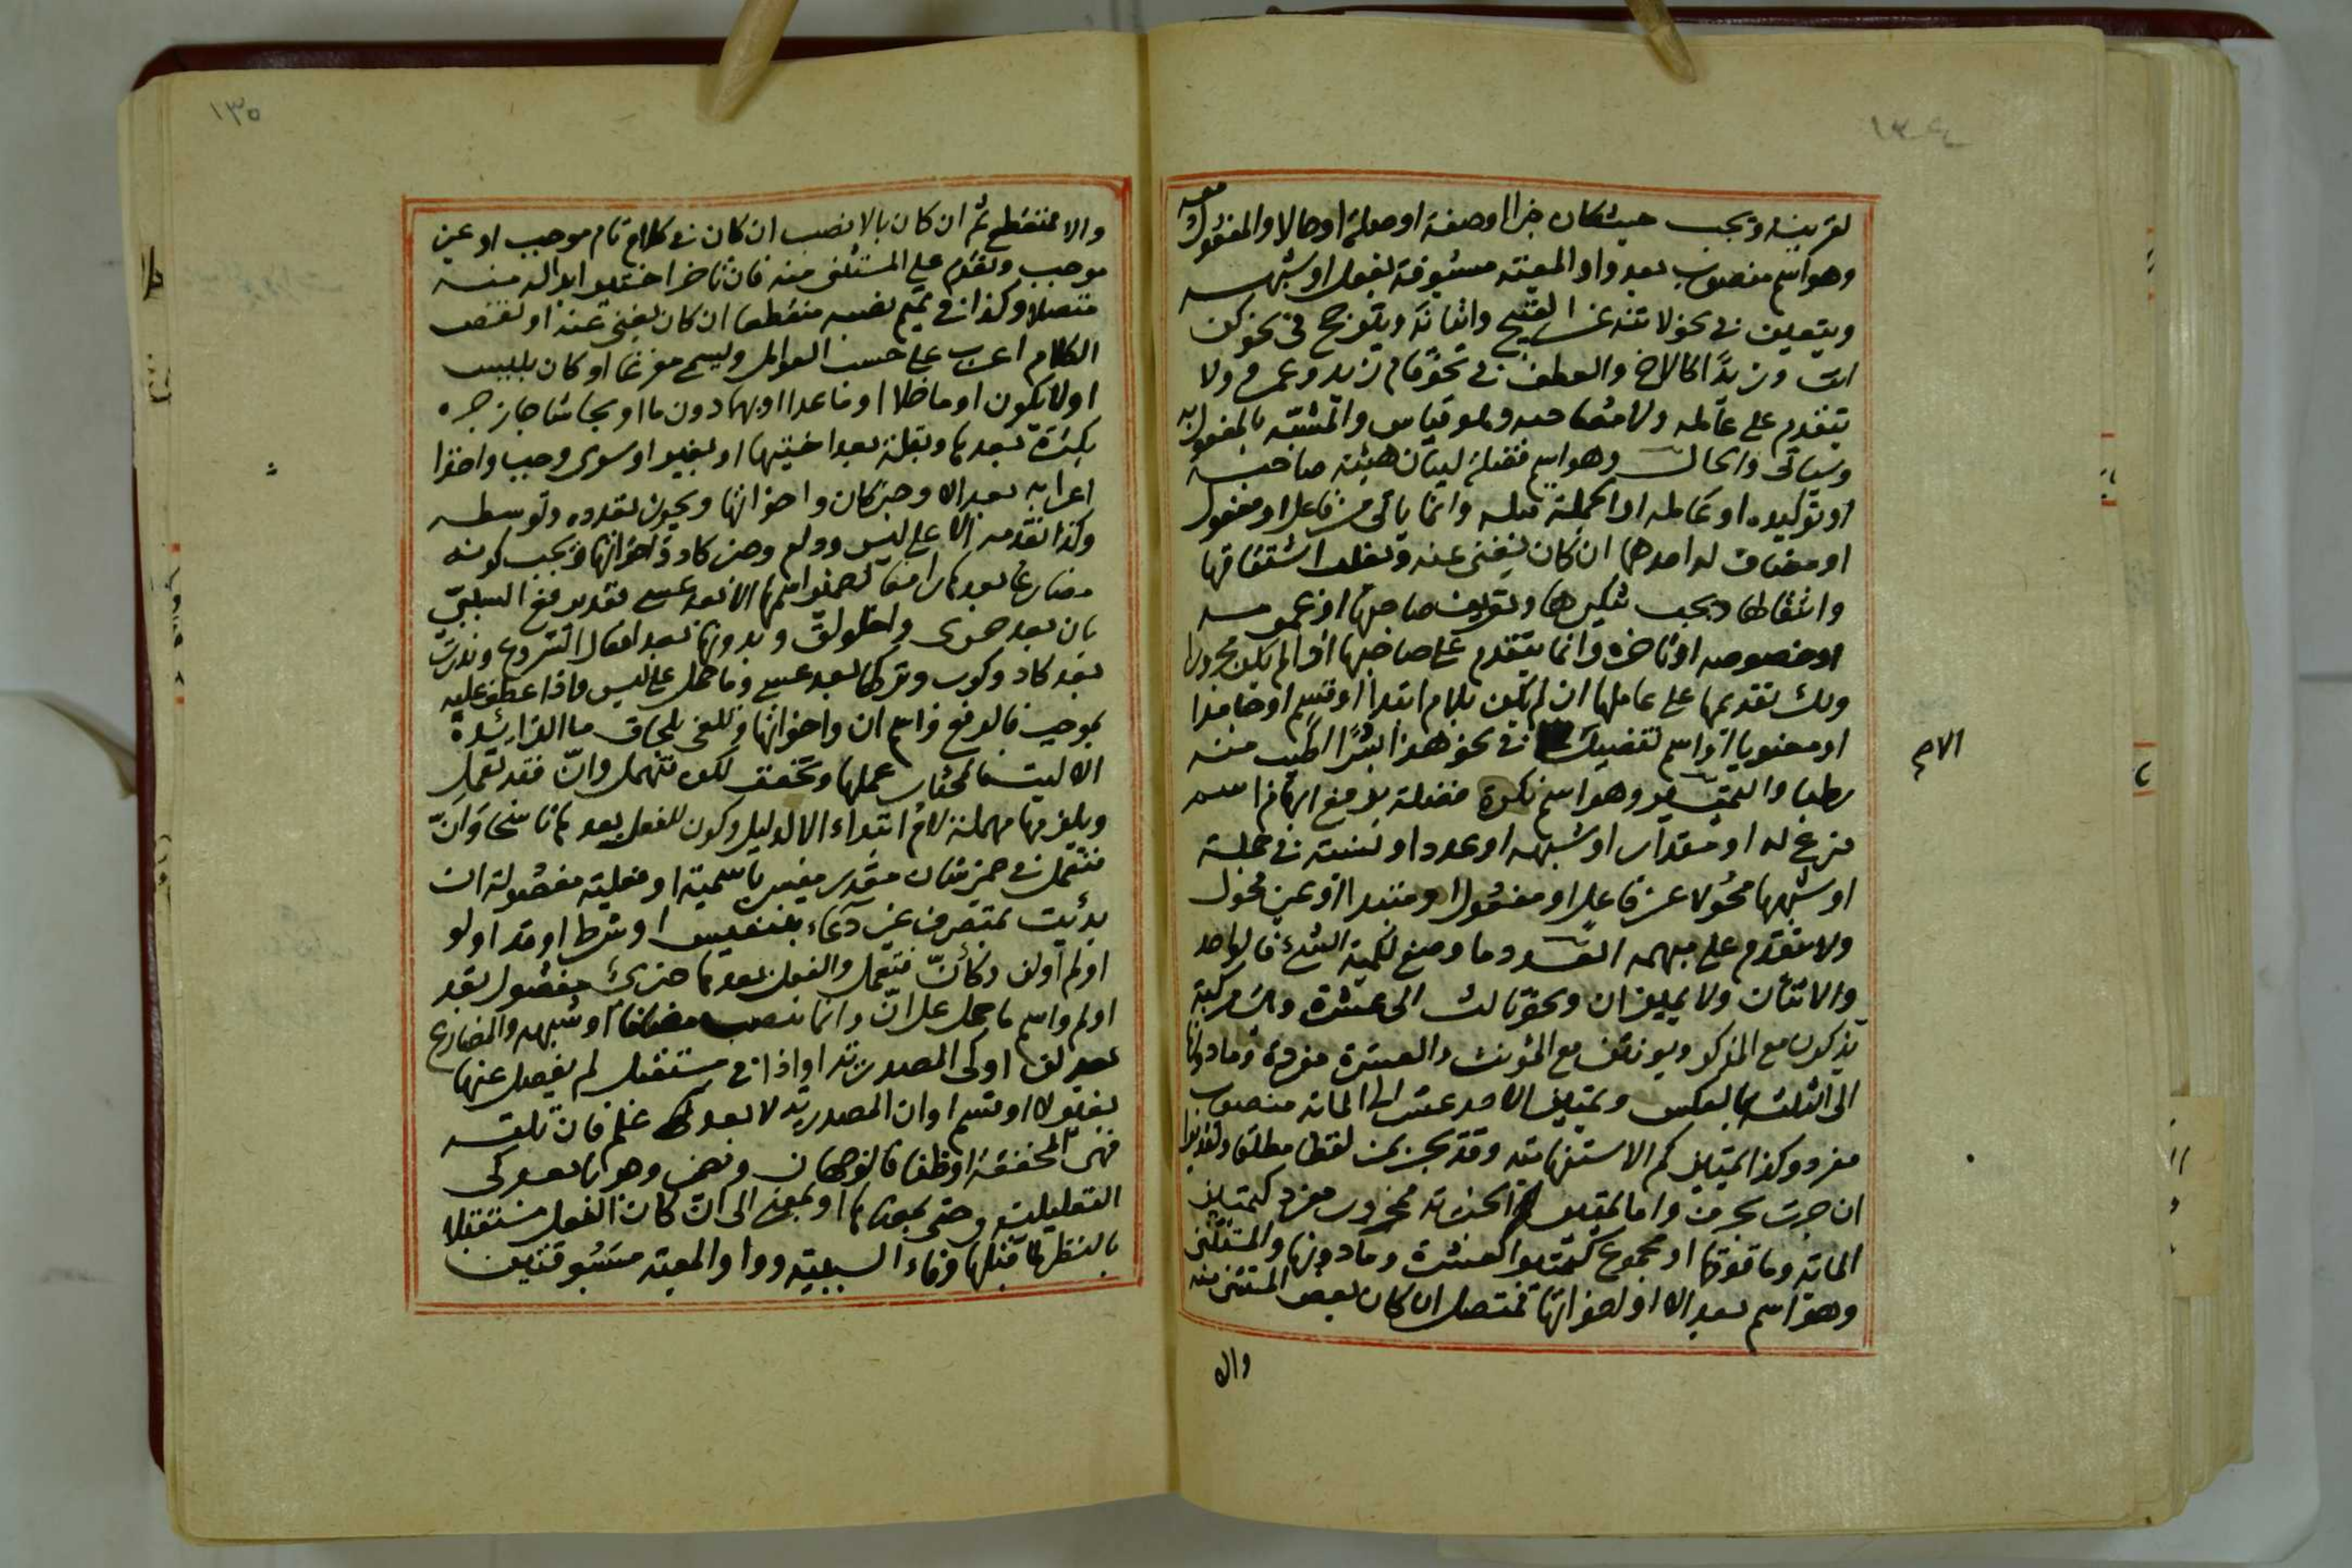 ١٣٤
لقرينة ويجب حيث كان خبرا او صفة او صلة او حالا والمفعول معه
وهو اسم منصوب بعد واو المعية مسبوقة بفعل او شبهه
ويتعين في نحو لا تنه عن القبيح واتيانه ويترجح في نحو كن
انت وزيدا كالاخ والعطف في نحو قام زيد وعمرو ولا
يتقدم على عامله ولا مصاحبه وهو قياس والمشبه بالمفعول به
وسياتي والحال وهو اسم فضلة لبيان هيئة صاحبه
او توكيده او عامله او الجملة قبله وانما ياتي من فاعل او مفعول
او مضاف له احدهما ان كان يغني عنه ويغلب اشتقاقها
وانتقالها ويجب تنكيرها وتعريف صاحبها او عمومه
او خصوصه او تاخره وانما يتقدم على صاحبها اذا لم يكن مجرورا
ولك تقديمها على عاملها ان لم يكن بلام ابتداء او قسم او جامدا
او معنويا او اسم تفضيل في نحو هذا بسرا اطيب منه
رطبا والتمييز وهو اسم نكرة فضلة يرفع ابهام اسم
فرع له او مقدار او شبهه او عدد او نسبة في جملة
او شبهها محولا عن فاعل او مفعول او مبتدا او غير محول
ولا يتقدم على مبهمه العدد وما وضع لكمية الشيء فالواحد
والاثنان ولا يميزان ونحو ثالث الى عشرة ولك مركبة
يذكر مع المذكر ويونث مع المونث والعشرة مفردة وما دونها
الى الثلثة بالعكس وتمييز الاحد عشر الى المائة منصوب
مفرد وكذا تمييز كم الاستفهامية وقد يجر بمن لفظا مطلقا وتقديرا
ان جرت بحرف واما تمييز الخبرية فمجرور مفرد كتمييز
المائة وما فوقها او مجموع كتمييز العشرة وما دونها والمستثنى
وهو اسم بعد الا او اخواتها فمتصل ان كان بعض المستثنى منه
والا
الاسم
١٣٥
والا فمنقطع ثم ان كان بالا نصب ان كان في كلام تام موجب او غير
موجب وتقدم على المستثنى منه فان تاخر اختير ابداله منه
متصلا وكذا في تميم نصبه منقطعا ان كان يغني عنه او نقص
الكلام اعرب على حسب العوامل ويسمى مفرغا او كان بليس
او لا يكون او ما خلا او ما عدا او بهما دون ما او بحاشا جاز جره
بكثرة بعدها وبقلة بعد اختيها او بغير او سوى وجب واخذا
اعرابه بعد الا وخبر كان واخواتها ويجوز تعدده وتوسطه
وكذا تقدمه الا على ليس ودام وخبر كاد واخواتها ويجب كونه
مضارعا بعدها رافعا لضمير اسمها الا بعد عسى فقد يرفع السببي
بان بعد حرى واخلولق وبدونها بعد افعال الشروع وندرت
بعد كاد وكرب وتركها بعد عسى وما حمل على ليس واذا عطف عليه
بموجب فالرفع واسم ان واخواتها وتلغى بلحاق ما الزائدة
الا ليت فالمختار عملها وتخفف لكن فتهمل وان فقد تعمل
ويلزمها مهملة لام ابتداء الا لدليل وكون الفعل بعدها ناسخا وان
فتعمل في ضمير شان مقدر مفسر باسمية او فعلية مفصولة ان
بدئت بمتصرف غير دعاء بتنفيس او شرط او قد او لو
او لم او لن وكان فتعمل والفعل بعدها خبري مفصول بقد
او لم واسم ما حمل على ان وانما ينصب مضافا او شبهه والمضارع
بعد لن او كي المصدرية او اذا في مستقبل لم يفصل عنها
بغير لا او قسم او ان المصدرية لا بعد علم فان تلته
فهي المخففة او ظنا فالوجهان وتضمر وهو بعد كي
التعليلية وحتى بمعناها او بمعنى الى ان كان الفعل مستقبلا
بالنظر لما قبلها وفاء السببية وواو المعية مسبوقتين